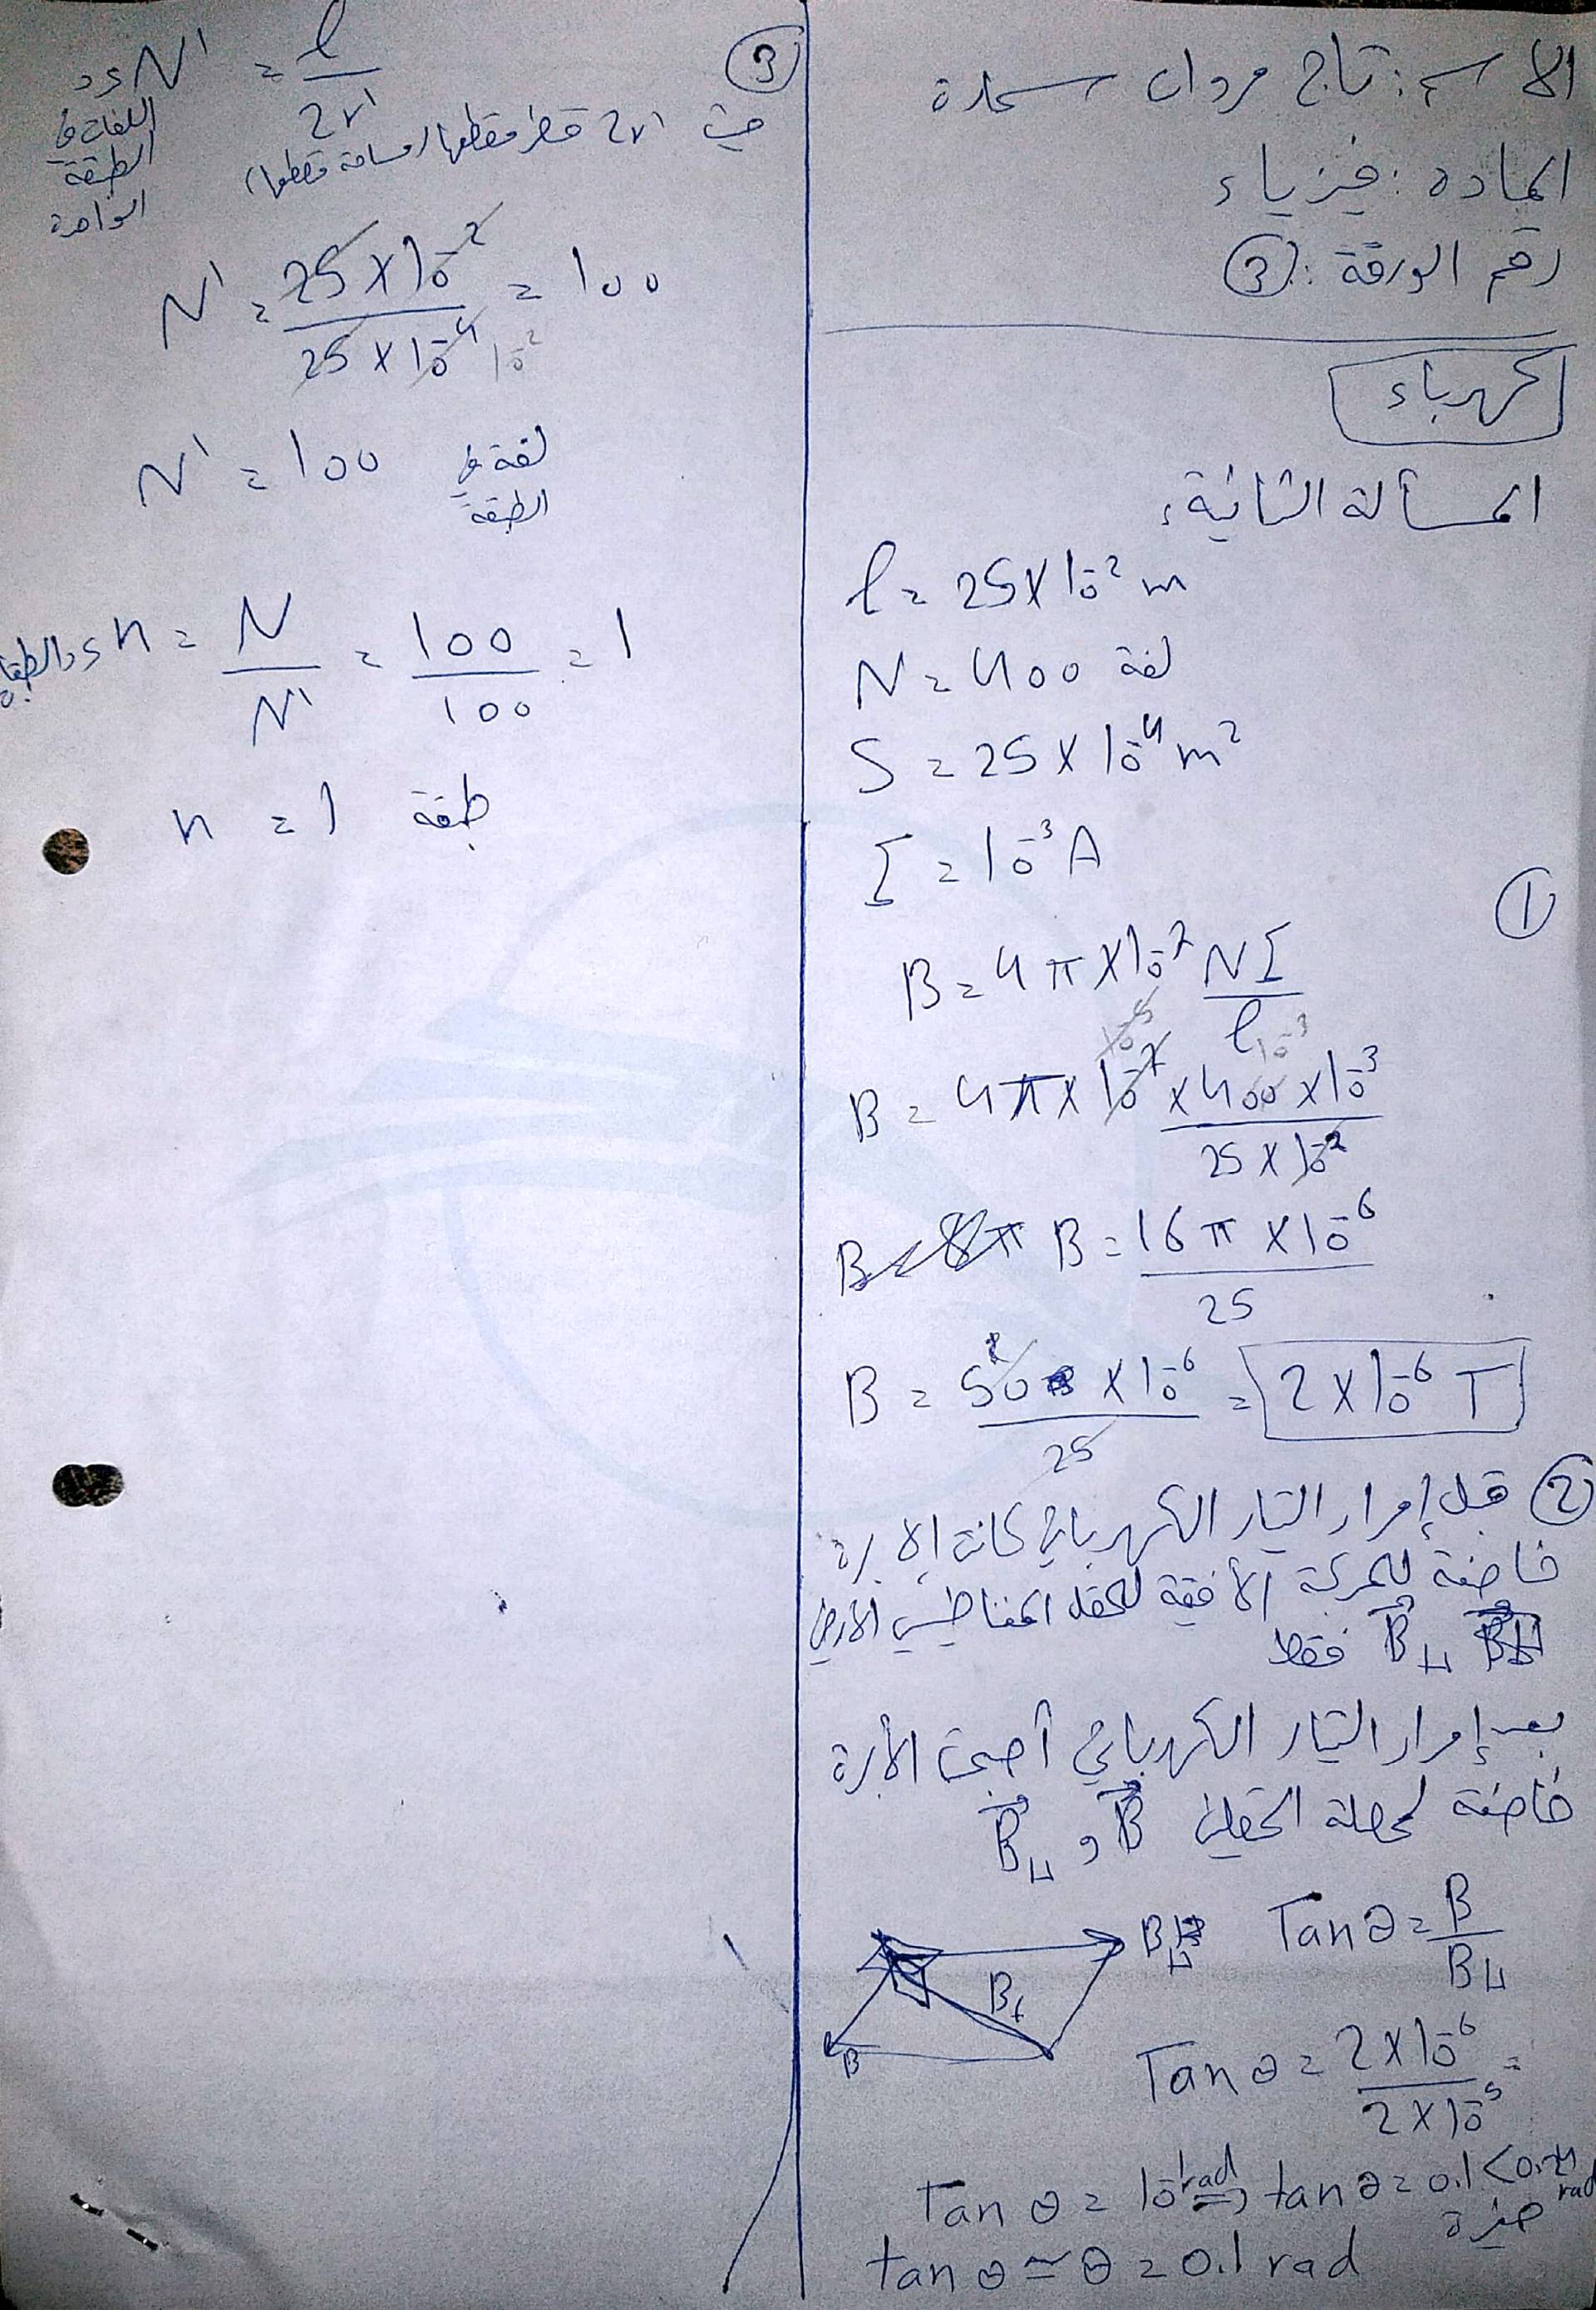 الاسم: تاج مروان سعادة
المادة: فيزياء
رقم الورقة: 3
كهرباء
المسألة الثانية:
l = 25 × 10⁻² m
N = 400 لفة
S = 25 × 10⁻⁴ m²
I = 10⁻³ A
①
B = 4π × 10⁻⁷ NI / l
B = 4π × 10⁻⁷ × 400 × 10⁻³ / 25 × 10⁻²
10⁻⁵ 10⁻³
B = 8π B = 16π × 10⁻⁶ / 25
B = 50 × 10⁻⁶ / 25 = 2 × 10⁻⁶ T
2
② قبل إمرار التيار الكهربائي كانت الإبرة
خاضعة للمركبة الأفقية للحقل المغناطيسي الأرضي
B_H فقط
بعد إمرار التيار الكهربائي أصبحت الأبرة
خاضعة لمحصلة الحقلين B و B_H
Tan θ = B / B_H
B_H
B_t
B
Tan θ = 2 × 10⁻⁶ / 2 × 10⁻⁵ =
Tan θ = 10⁻¹ rad ⇒ tan θ = 0.1 < 0.24 rad
صغيرة
tan θ ≃ θ = 0.1 rad
③
N' = l / 2r'
عدد اللفات في
الطبقة
الواحدة
حيث 2r' قطر مقطعها (مساحة مقطعها)
N' = 25 × 10⁻² / 25 × 10⁻⁴ = 100
10⁻²
N' = 100 لفة في
الطبقة
عدد الطبقات n = N / N' = 100 / 100 = 1
n = 1 طبقة